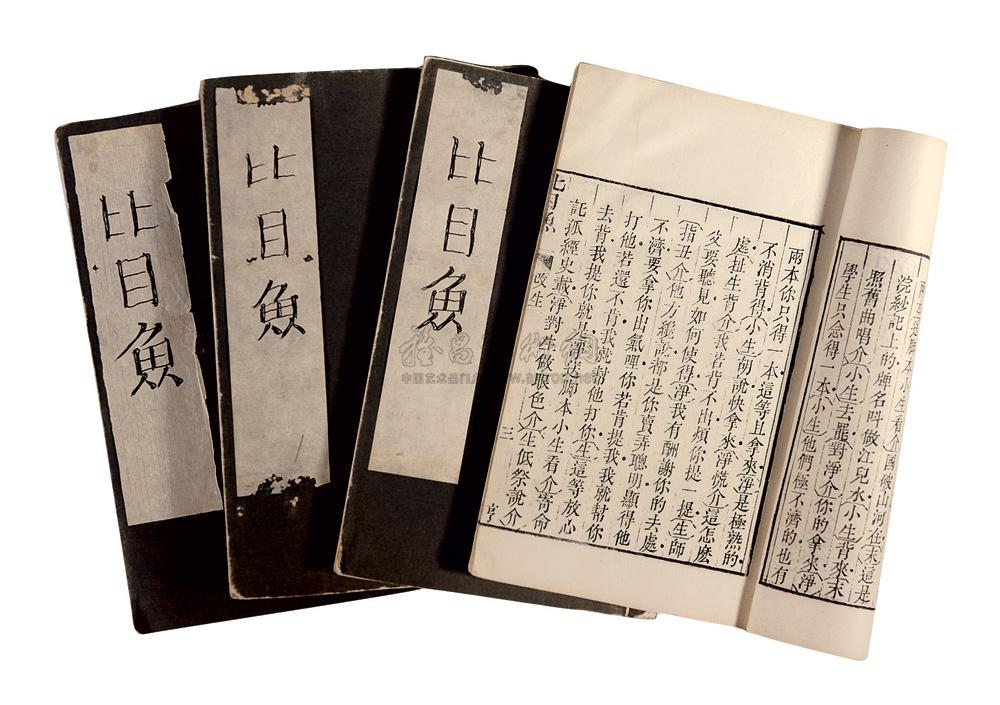 比目魚
比目魚
比目魚
照舊曲唱介小生去罷對淨介你的拿來淨
學生只會得一本小生他們極不濟的也有
兩本你只得一本這等且拿來淨是極熟的
不消背得小生胡說快拿來淨慌介這怎麼
處扯生背介我若背不出煩你提一提生師
父要聽見如何使得淨我有酬謝你的去處
指丑介他方纔說都是你賣弄聰明顯得他
不濟要拿你出氣哩你若肯提我我就幫你
打他若還不肯我就幫他打你生這等放心
去背我提你就是
脚本小生看介寄命
託孤經史載淨對生做眼色介生低
說介
改生
三
亨